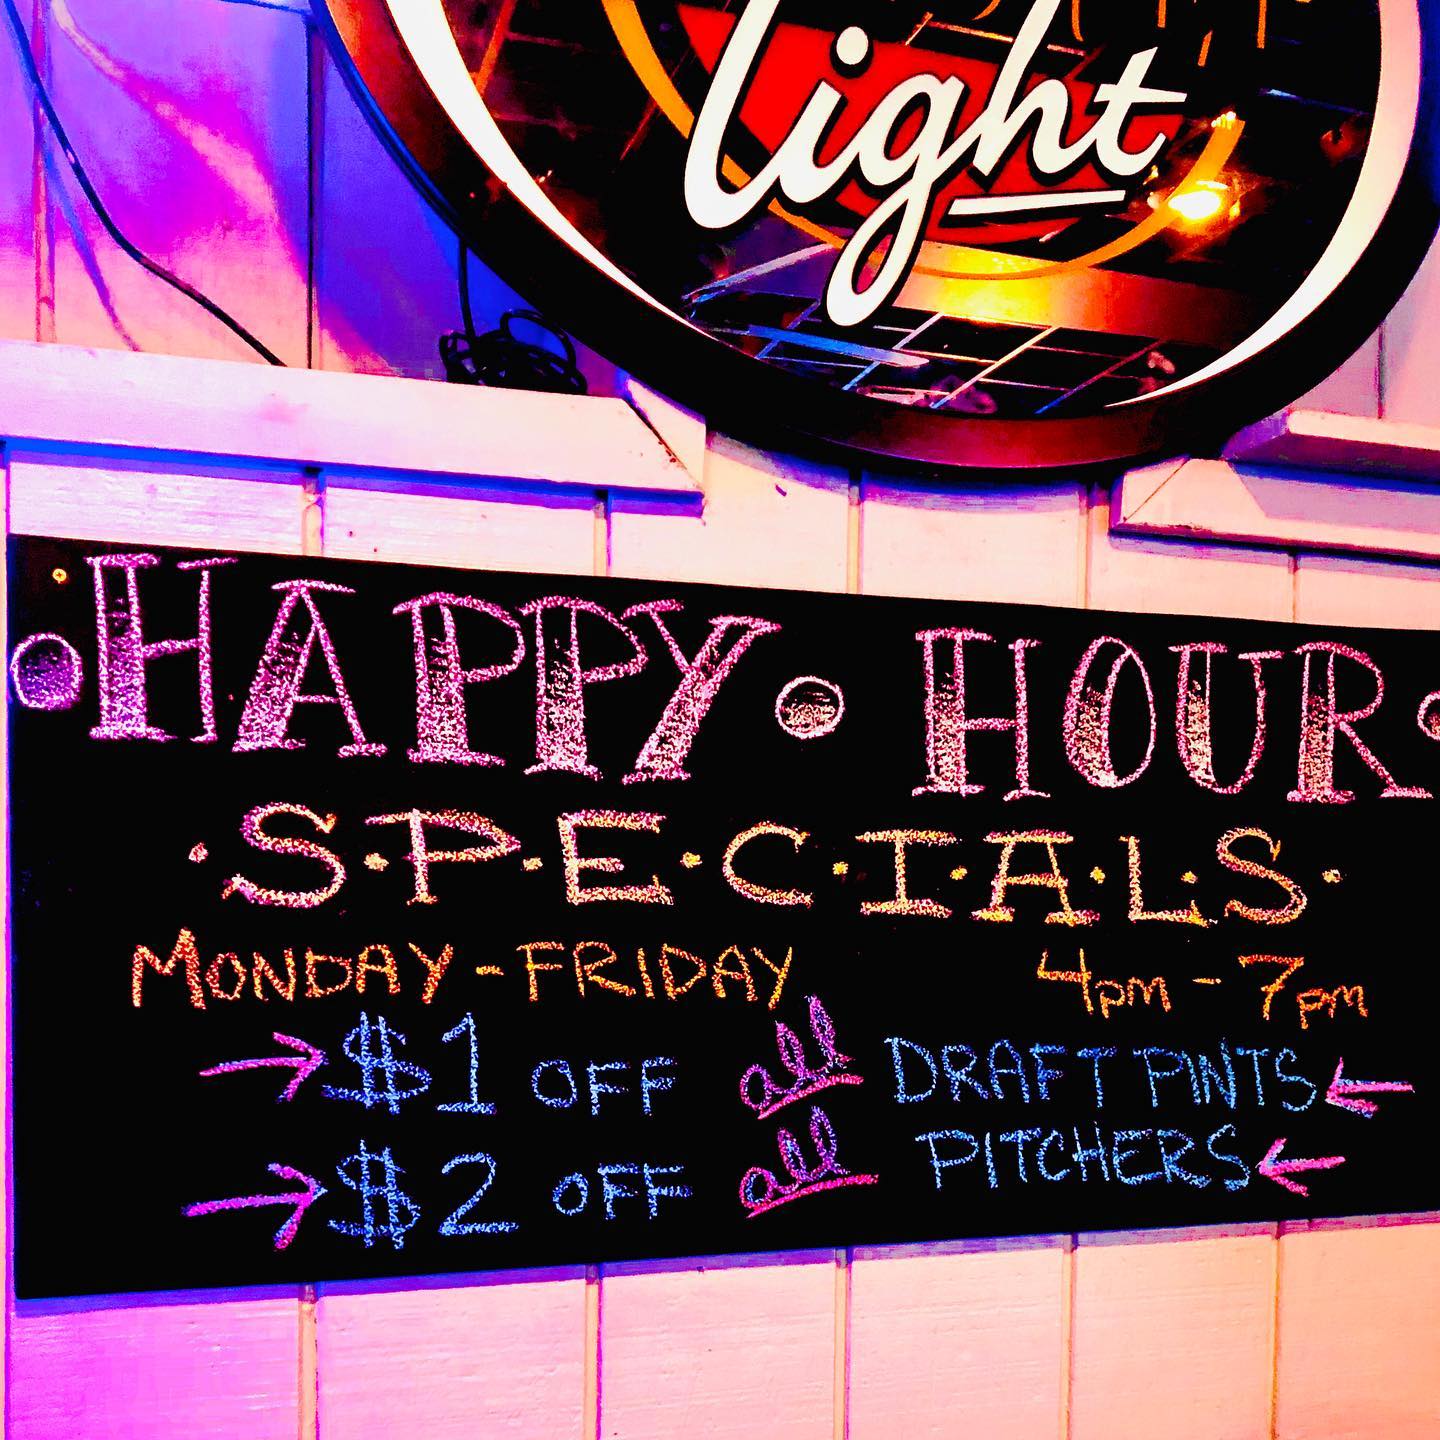 Light
HAPPY • HOUR
• S • P • E • C • I • A • L • S •
MONDAY - FRIDAY 4pm - 7pm
→ $1 OFF all DRAFT PINTS ←
→ $2 OFF all PITCHERS ←